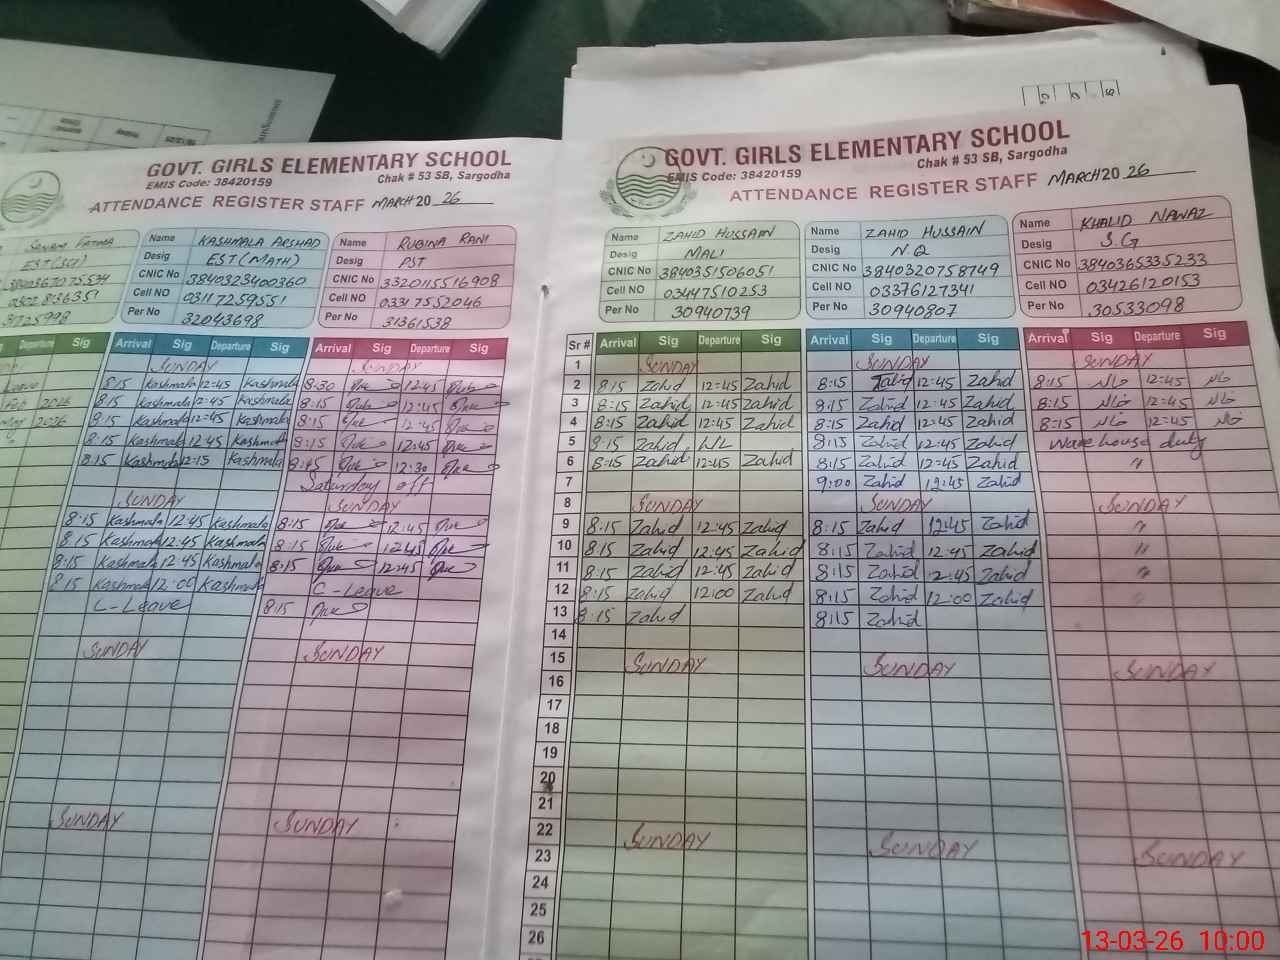 GOVT. GIRLS ELEMENTARY SCHOOL
EMIS Code: 38420159 Chak # 53 SB, Sargodha
ATTENDANCE REGISTER STAFF MARCH 20 26
FATIMA
EST(SCI)
Name KASHMALA ARSHAD
Desig EST(MATH)
CNIC No 3840323400360
Cell NO 03117259551
Per No 32043698
Name RUBINA RANI
Desig PST
CNIC No 3320115516908
Cell NO 0331 7552046
Per No 31361538
Departure Sig Arrival Sig Departure Sig Arrival Sig Departure Sig
SUNDAY SUNDAY
8:15 Kashmala 12:45 Kashmala 8:30 12:45
8:15 Kashmala 12:45 Kashmala 8:15 12:45
8:15 Kashmala 12:45 Kashmala 8:15 12:45
8:15 Kashmala 12:45 Kashmala 8:15 12:45
8:15 Kashmala 12:15 Kashmala 12:30
Saturday off
SUNDAY SUNDAY
8:15 Kashmala 12:45 Kashmala 8:15 12:45
8:15 Kashmala 12:45 Kashmala 8:15 12:45
8:15 Kashmala 12:45 Kashmala 8:15 12:45
8:15 Kashmala 12:00 Kashmala C-Leave
C-Leave 8:15
SUNDAY SUNDAY
SUNDAY SUNDAY
GOVT. GIRLS ELEMENTARY SCHOOL
EMIS Code: 38420159 Chak # 53 SB, Sargodha
ATTENDANCE REGISTER STAFF MARCH 20 26
Name ZAHID HUSSAIN
Desig MALI
CNIC No 3840351506051
Cell NO 03447510253
Per No 30940739
Name ZAHID HUSSAIN
Desig N.Q
CNIC No 3840320758749
Cell NO 03376127341
Per No 30940807
Name KHALID NAWAZ
Desig S.G
CNIC No 3840365335233
Cell NO 03426120153
Per No 30533098
Sr # Arrival Sig Departure Sig Arrival Sig Departure Sig Arrival Sig Departure Sig
1 SUNDAY SUNDAY SUNDAY
2 8:15 Zahid 12:45 Zahid 8:15 Zahid 12:45 Zahid 8:15 خالد 12:45 خالد
3 8:15 Zahid 12:45 Zahid 8:15 Zahid 12:45 Zahid 8:15 خالد 12:45 خالد
4 8:15 Zahid 12:45 Zahid 8:15 Zahid 12:45 Zahid 8:15 خالد 12:45 خالد
5 Zahid 8:15 Zahid 12:45 Zahid Ware house duty
6 8:15 Zahid 12:45 Zahid 8:15 Zahid 12:45 Zahid "
7 9:00 Zahid 12:45 Zahid
8 SUNDAY SUNDAY SUNDAY
9 8:15 Zahid 12:45 Zahid 8:15 Zahid 12:45 Zahid "
10 8:15 Zahid 12:45 Zahid 8:15 Zahid 12:45 Zahid "
11 8:15 Zahid 12:45 Zahid 8:15 Zahid 12:45 Zahid "
12 8:15 Zahid 12:00 Zahid 8:15 Zahid 12:00 Zahid "
13 8:15 Zahid 8:15 Zahid
14
15 SUNDAY SUNDAY SUNDAY
16
17
18
19
20
21
22 SUNDAY SUNDAY SUNDAY
23
24
25
26
13-03-26 10:00